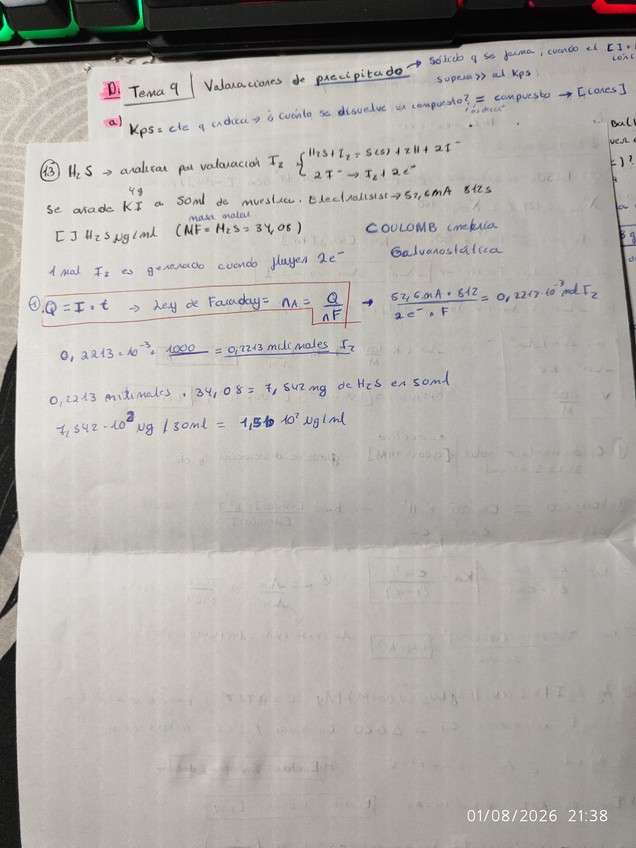 D. Tema 9 | Valoraciones de precipitado → Sólido q se forma, cuando el [ ]
supera >> al Kps.
a) Kps = cte q indica → a cuánto se disuelve un compuesto? = compuesto → [iones]
(13) H₂S → analizar por valoración I₂ { H₂S + I₂ = S(s) + 2H + 2I⁻
2I⁻ → I₂ + 2e⁻
4g
Se añade KI a 50ml de muestra. Electrolisis → 52,6mA 812s
masa molar
[ ] H₂S µg/ml (MF = H₂S = 34,08)
COULOMBimetria
Galvanostática
1 mol I₂ es generado cuando fluyen 2e⁻
① Q = I · t → Ley de Faraday = nA = Q/nF → 52,6mA · 812 / 2e⁻ · F = 0,2213·10⁻³ mol I₂
0,2213·10⁻³ · 1000 = 0,2213 milimoles I₂
0,2213 milimoles · 34,08 = 7,542 mg de H₂S en 50ml
7,542·10³ µg / 50ml = 1,51·10² µg/ml
01/08/2026 21:38